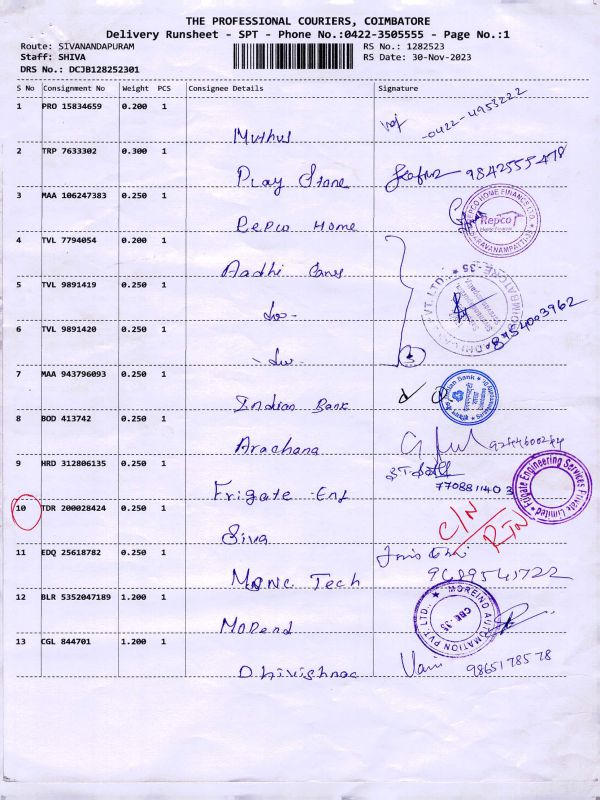 THE PROFESSIONAL COURIERS, COIMBATORE
Delivery Runsheet - SPT - Phone No.:0422-3505555 - Page No.:1
Route: SIVANANDAPURAM
Staff: SHIVA
DRS No.: DCJB128252301
RS No.: 1282523
RS Date: 30-Nov-2023
S No Consignment No Weight PCS Consignee Details Signature
1 PRO 15834659 0.200 1
Muthus -0422-4953222
2 TRP 7633302 0.300 1
Play Stone 9842555478
3 MAA 106247383 0.250 1
Repco Home
REPCO HOME FINANCE LTD.
Repco
4 TVL 7794054 0.200 1
Aadhi
5 TVL 9891419 0.250 1
6 TVL 9891420 0.250 1
3
COIMBATORE-35
PVT. LTD.
8754003962
7 MAA 943796093 0.250 1
Indian Bank
Indian Bank
8 BOD 413742 0.250 1
Arachana
9 HRD 312806135 0.250 1
Frigate Eng
7708811403
Frigate Engineering Services Private Limited
10 TDR 200028424 0.250 1
Siva C/N RTN
11 EDQ 25618782 0.250 1
Tech
12 BLR 5352047189 1.200 1
Morend
MOREIND AUTOMATION PVT. LTD.,
CBE-35
13 CGL 844701 1.200 1
9865178578